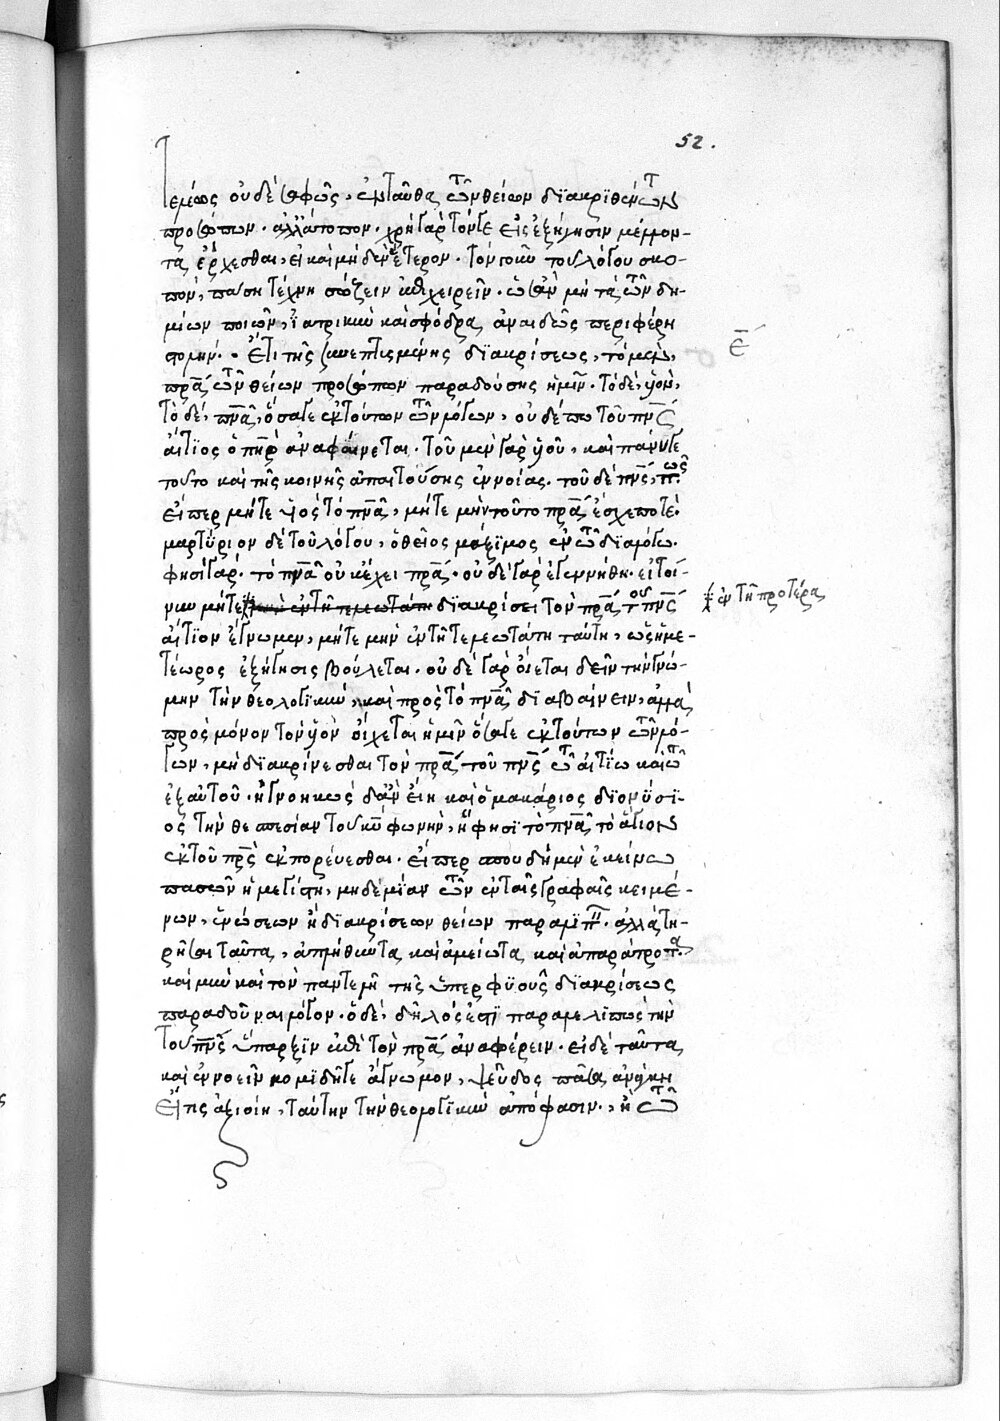 52.
τελέως οὐδὲ σαφῶς, ἐνταῦθα τῶν θείων διακριθέντων
προσώπων. ἀλλ' ἄτοπον. χρὴ γὰρ τόν γε εἰς ἐξήγησιν μέλλον-
τα ἔρχεσθαι, εἰ καὶ μηδὲν ἕτερον. τὸν γοῦν τοῦ λόγου σκο-
πὸν, πάσῃ τέχνῃ σώζειν ἐπιχειρεῖν. ὡσὰν μὴ τὰ τῶν δη-
μίων ποιῶν, ἰατρικὴν καὶ σφόδρα ἀναιδῶς περιφέρῃ
στολήν. Ἔτι τῆς διακρίσεως, τὸ μὲν,
πρα τῶν θείων προσώπων παραδούσης ἡμῖν. τὸ δὲ, υον,
τὸ δὲ, πνα, ὅσα γε ἐκ τούτων τῶν λόγων, οὐδέπω τοῦ πνς
αἴτιος ὁ πηρ ἀναφαίνεται. τοῦ μὲν γὰρ υου, καὶ πάνυ γε
τοῦτο καὶ τῆς κοινῆς ἀπαιτούσης ἐννοίας. τοῦ δὲ πνς, πῶς
εἴπερ μήτε υος τὸ πνα, μήτε μὴν τοῦτο πρα ἔσχε ποτέ.
μαρτύριον δὲ τοῦ λόγου, ὁ θεῖος μάξιμος ἐν τῶ διαλόγω.
φησὶ γάρ. τὸ πνα οὐκ ἔχει πρα. οὐδὲ γὰρ ἐγεννήθη. εἰ τοί-
νυν μήτε διακρίσει τὸν πρα τοῦ πνς
ἐν τῇ προτέρα
αἴτιον ἔγνωμεν, μήτε μὴν ἐν τῇ τελεωτάτῃ ταύτῃ, ὡς ἡ με-
τέωρος ἐξήγησις βούλεται. οὐδὲ γὰρ οἴεται δεῖν τὴν γνώ-
μην τὴν θεολογικὴν, καὶ πρὸς τὸ πνα διαβαίνειν, ἀλλὰ
πρὸς μόνον τὸν υον οἴχεται ἡμῖν ὅσα γε ἐκ τούτων τῶν λό-
γων, μὴ διακρίνεσθαι τὸν πρα τοῦ πνς τῶ αἰτίω καὶ τῶ
ἐξ αὐτοῦ. ἠγνοηκὼς δ' ἂν εἴη καὶ ὁ μακάριος διονύσι-
ος τὴν θεσπεσίαν τοῦ κυ φωνὴν, ἥ φησι τὸ πνα τὸ ἅγιον
ἐκ τοῦ πρς ἐκπορεύεσθαι. εἴπερ σπουδὴ μὲν ἐκείνω
πασῶν ἡ μεγίστη, μηδεμίαν τῶν ἐν ταῖς γραφαῖς κειμέ-
νων, ἑνώσεων ἢ διακρίσεων θείων παραλιπ. ἀλλὰ τη-
ρῆσαι ταῦτα, ἀπλήθυντα καὶ ἀμείωτα καὶ ἀπαράτροπα.
καὶ μὴν καὶ τὸν παντελῆ τῆς ὑπερφυοῦς διακρίσεως
παραδοῦναι λόγον. ὁ δὲ, δῆλός ἐστι παραλελιπὼς τὴν
τοῦ πνς ὕπαρξιν ἐπὶ τὸν πρα ἀναφέρειν. εἰ δὲ ταῦτα
καὶ ἐννοεῖν κομιδῇ γε ἄγνωμον, ψεῦδος πᾶσα ἀνάγκη
εἴ τις ἀξιοίη, ταύτην τὴν θεολογικὴν ἀπόφασιν, ἢ τῶ